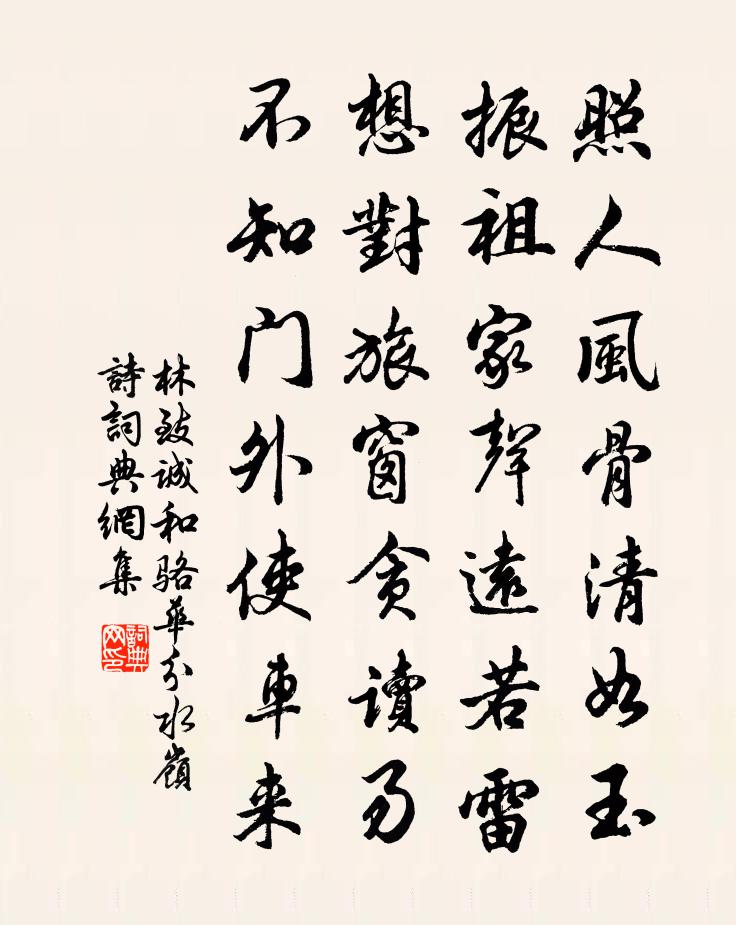 照人風骨清如玉
振祖家聲遠若雷
想對旅窗貪讀易
不知門外使車来
林致誠和駱華分水嶺
詩詞典網集
詞典網印